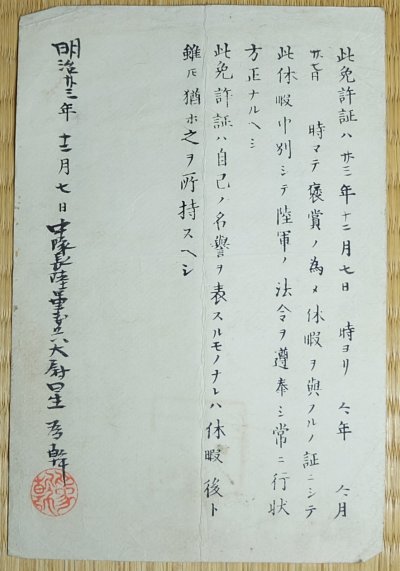 此免許証ハ廿三年十二月七日 時ヨリ 仝年 仝月
廿七日 時マテ褒賞ノ為メ休暇ヲ與フルノ証ニシテ
此休暇中別シテ陸軍ノ法令ヲ遵奉シ常ニ行状
方正ナルヘシ
此免許証ハ自己ノ名譽ヲ表スルモノナレハ休暇後ト
雖𪜈猶ホ之ヲ所持スヘシ
明治廿三年十二月七日 中隊長陸軍歩兵大尉星